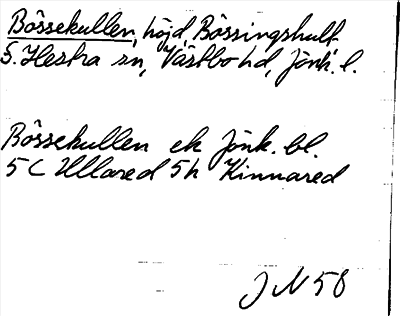 Bössekullen, höjd, Bössingshult
S. Hestra sn, Västbo hd, Jönk. l.
Bössekullen ek Jönk. bl.
5 C Ullared 5h Kinnared
J N 58